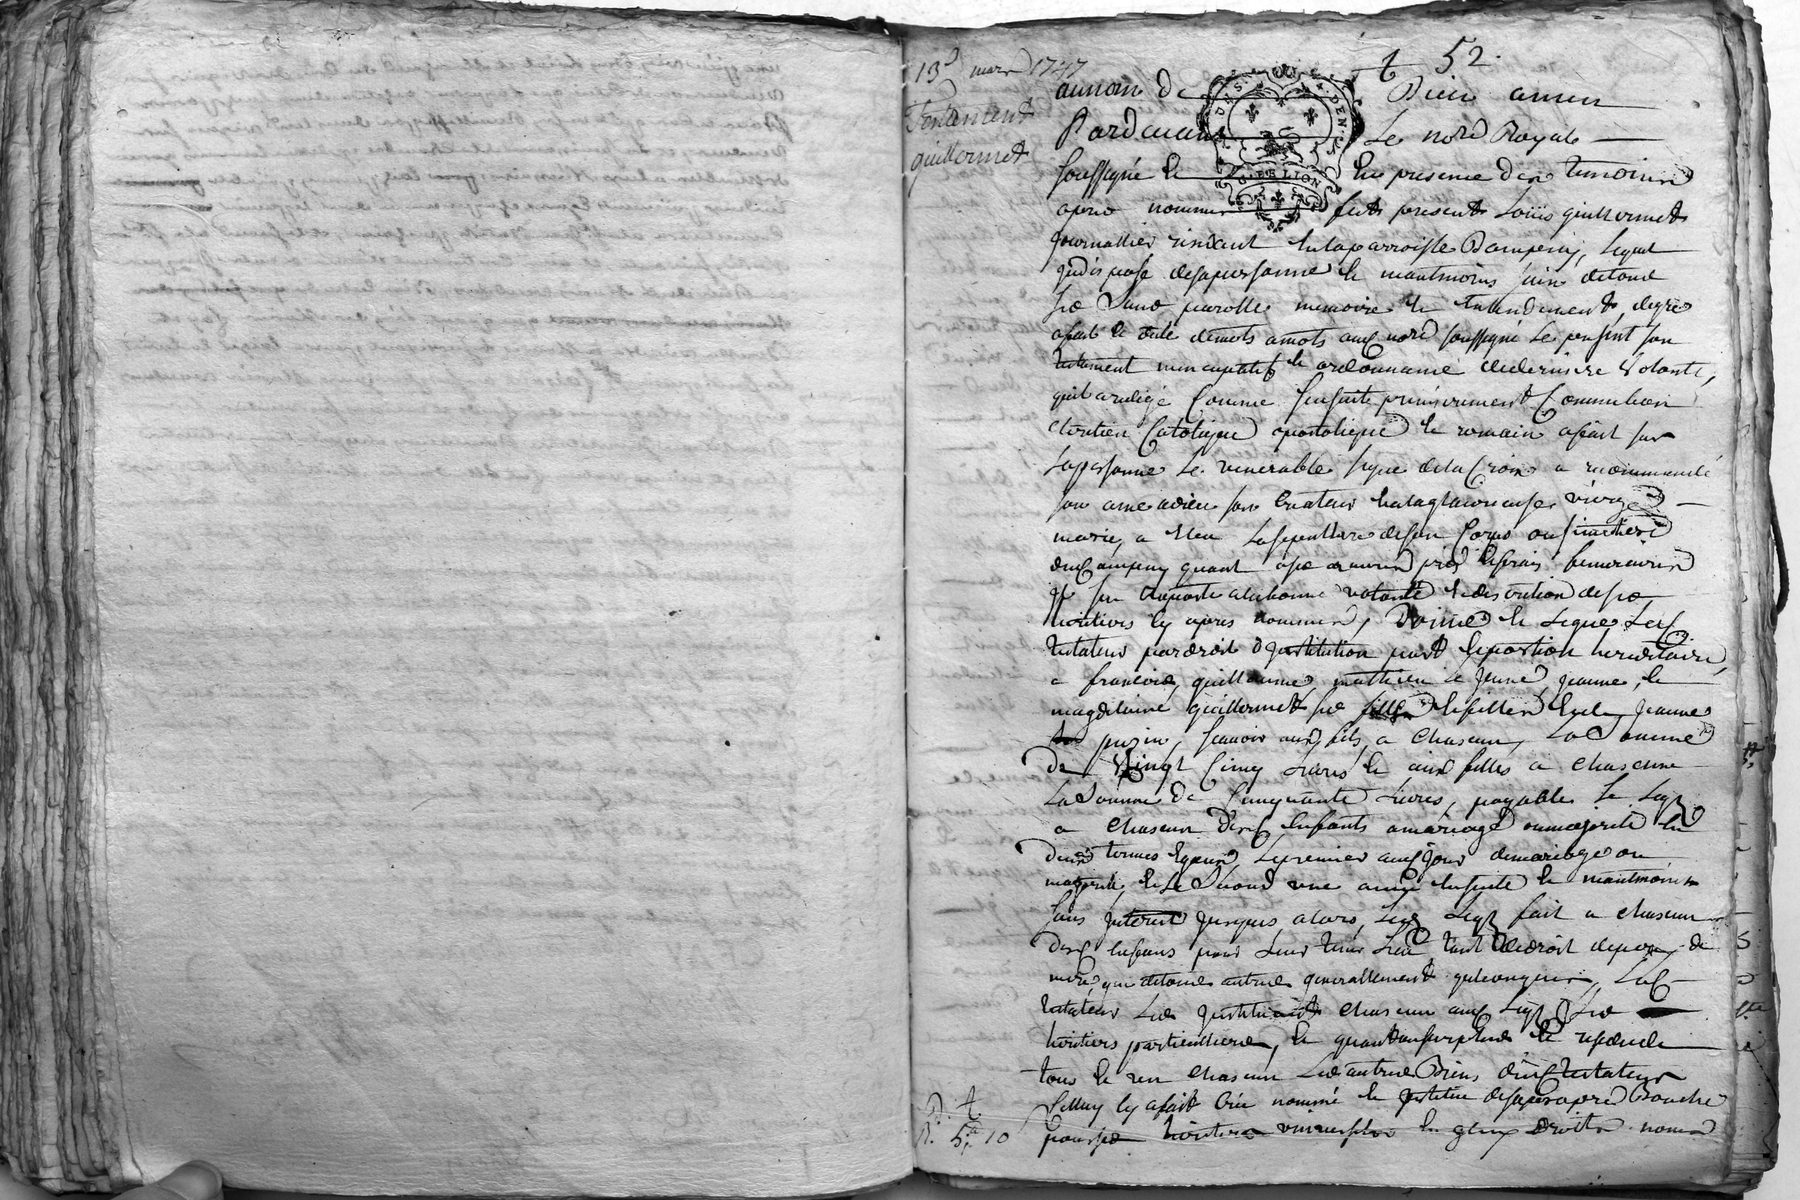 52.
13e mars 1747
Testament
guillermet
au nom de Dieu amen
Pardevant Le nore Royal
soussigné et En presence des temoins
apres nommes fut present Loüis guillermet
journallier residant En la parroisse Dampeiny, Lequel
de sa personne et neantmoins sain de tous
ses sans parolle memoire et Entendement, de gre
a fait et dicté de mots a mots aud nore soussigné Le present son
testament nuncupatif et ordonnance de derniere Volonté,
quil a redigé Comme sensuit premierement Comme bon
chretien Catolique apostolique et romain a fait sur
sa personne Le venerable signe de la Croix a recommandé
son ame a dieu son Createur Et a la glorieuse vierge
marie, a Eleu La sepulture de son Corps au simetiere
dud ampeiny quant a ses œuvres pies Et frais funeraires
il sen raporte a la bonne volonté Et discretion de ses
heritiers cy apres nommes, Donne et Legue Led
testateur par droit d'Institution part Et portion hereditaire,
a francois, guillaume, mathieu Le jeune, jeanne, et
magdelaine guillermet ses fils Et filles Et de jeanne
puzin, scavoir aux fils, a chascun, La Somme
De Vingt Cinq Livres et aux filles a chascune
La Somme De Cinquante Livres, payable Le Legs
a chascun desd Enfants a mariage ou majorité En
deux termes Egaux, Le premier aud jour de mariage ou
majorité, et Le Second une année Ensuite et neantmoins
sans jnterest jusques alors, Led Legs fait a chascun
desd Enfans pour Leur tenir Lieu tant de droit de pere, de
mere, que de tous autres generallement quelconques, Led
testateur Les jnstituant chascun aud Legs Ses
heritiers particulliers, et quant au surplus et residu de
tous et un chascun Ses autres Biens led testateur
Celluy cy a fait Crée nommé et jnstitue de sa propre Bouche
pour ses heritiers universels En Egaux droits nomes
R. 5.s 10